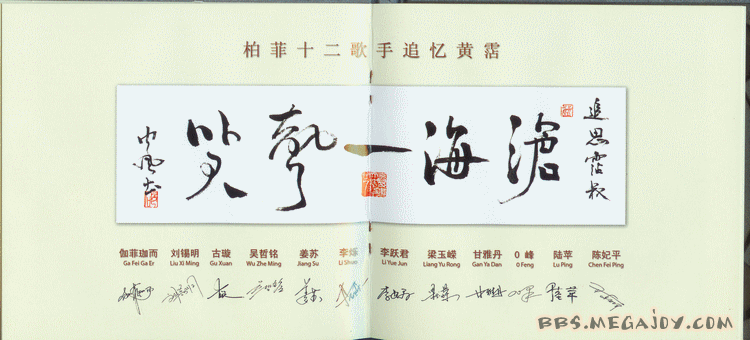 柏菲十二歌手追忆黄霑
追思霑叔
滄海一聲笑
伽菲珈而 刘锡明 古璇 吴哲铭 姜苏 李烁 李跃君 梁玉嵘 甘雅丹 O 峰 陆苹 陈妃平
Ga Fei Ga Er Liu Xi Ming Gu Xuan Wu Zhe Ming Jiang Su Li Shuo Li Yue Jun Liang Yu Rong Gan Ya Dan O Feng Lu Ping Chen Fei Ping
BBS.MEGAJOY.COM